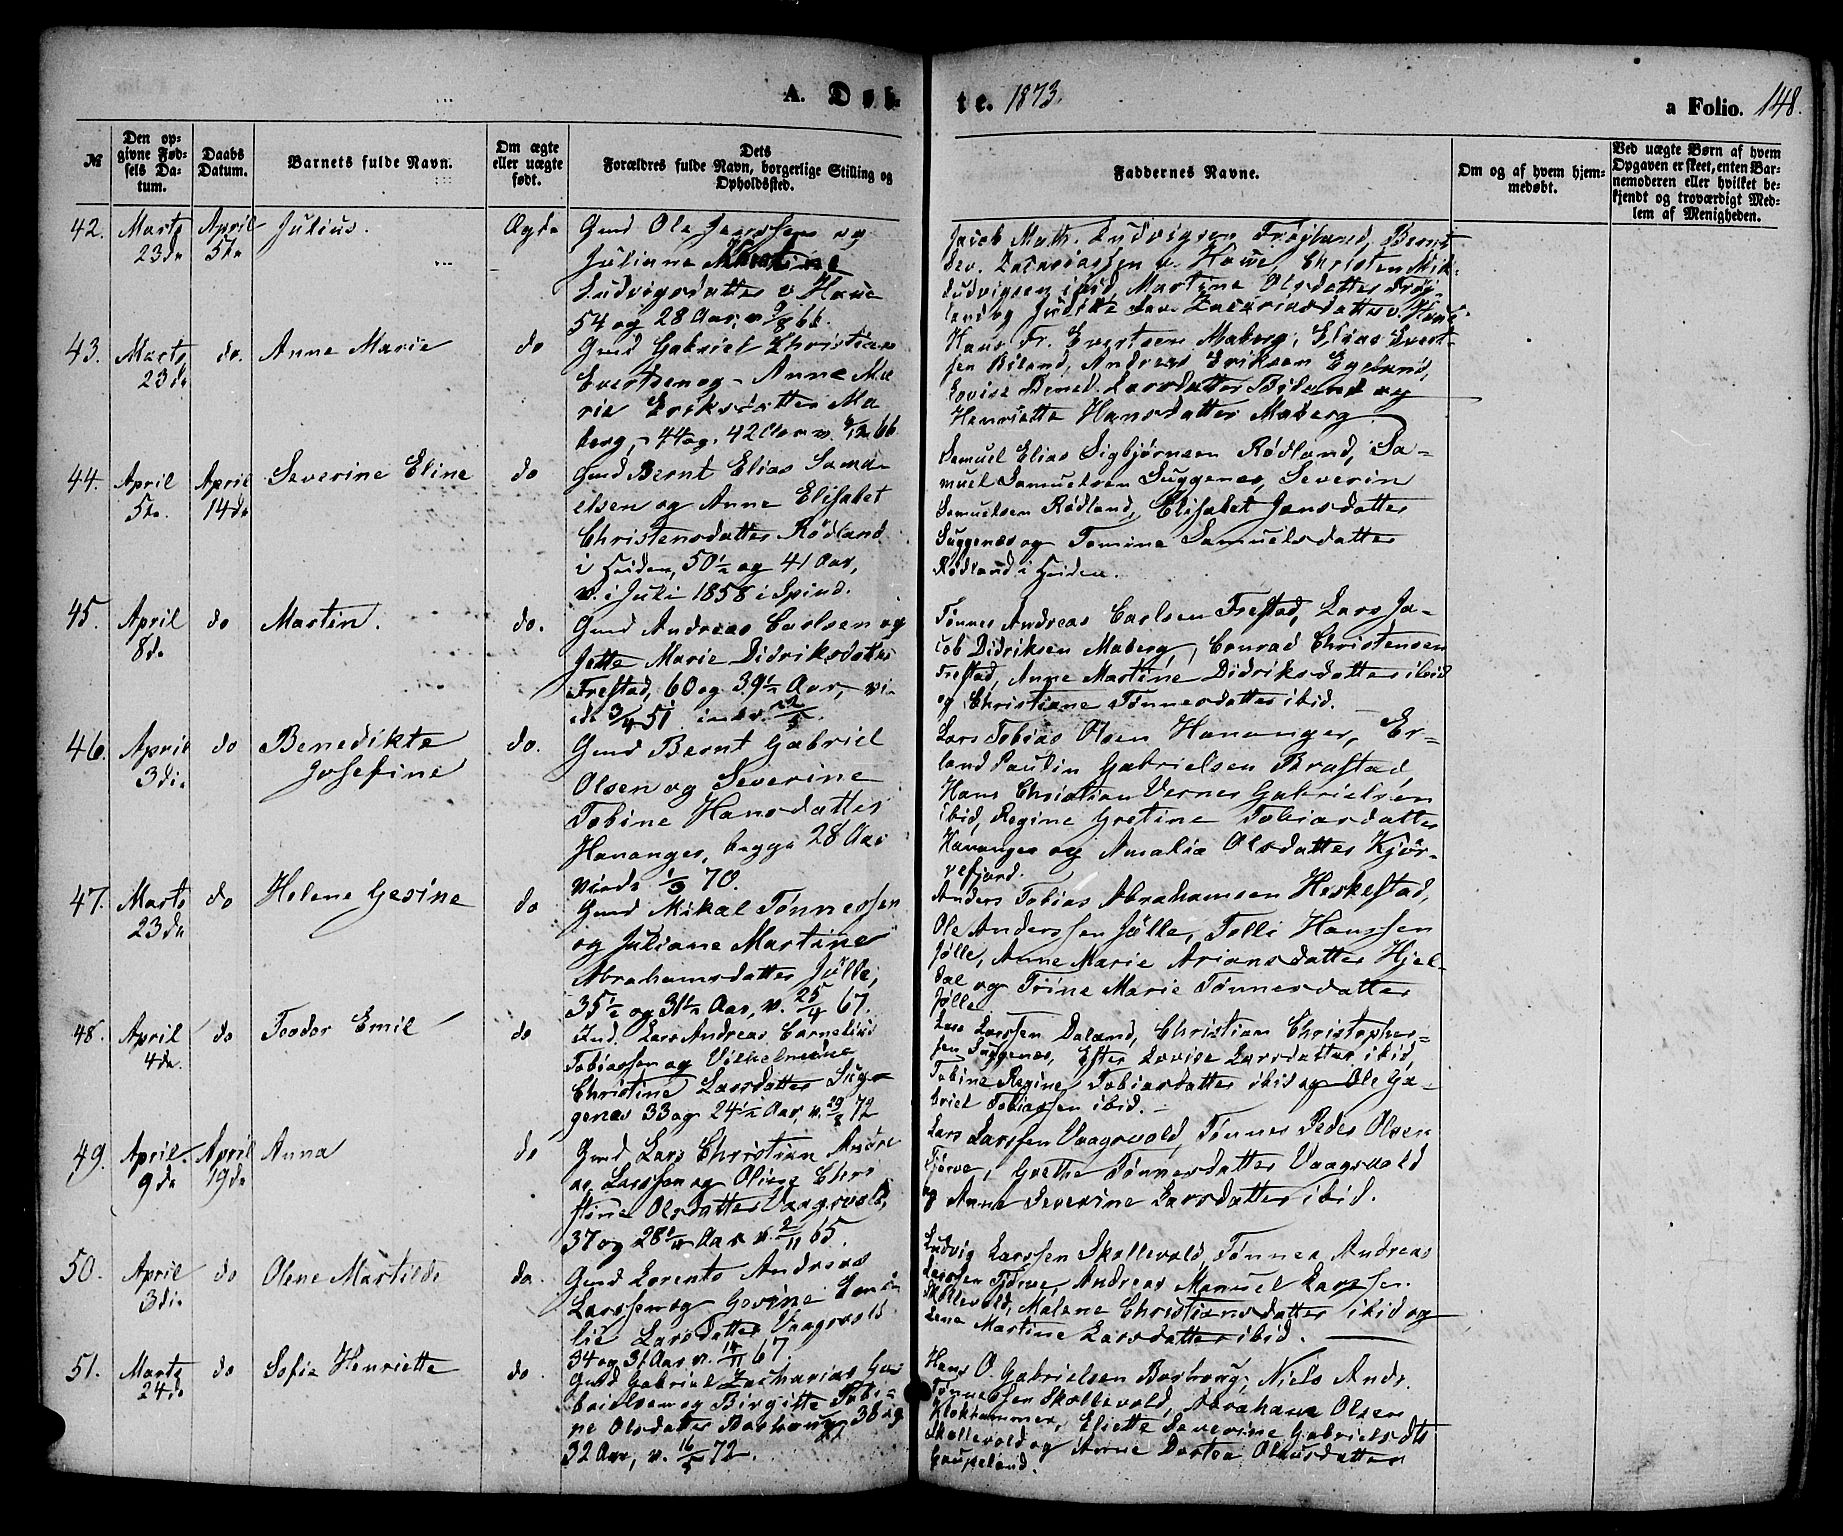 A. Døb-
te. 1873.
a Folio. 148.
№
Den op-
givne Fød-
sels Da-
tum.
Daabs
Datum.
Barnets fulde Navn.
Om ægte
eller uægte
født.
Dets
Forældres fulde Navn, borgerlige Stilling og
Opholdssted.
Faddernes Navne.
Om og af hvem hjem-
medøbt.
Ved uægte Børn af hvem
Opgaven er skeet, enten Bar-
nemoderen eller hvilket be-
kjendt og troværdigt Med-
lem af Menigheden.
42.
Marts
23de
April
5te
Julius.
Ægte
Gmd Ole Jenssen og
Juliane Martine
Ludvigsdatter v Haue
54 og 28 Aar, v. 9/8 66.
Jacob Math. Ludvigsen Frøjland, Bernt
Dev. Zacariassen v. Haue, Christen Mik-
Ludvigsen ibid, Martine Olsdatter Frøj-
land og Julike Dev. Zacariasdatter v. Haue
43.
Marts
23de
do.
Anne Marie
do
Gmd Gabriel Christian
Evertsen og Anne Ma
rie Eriksdatter Ma
berg, 44 og 42 Aar v. 9/12 66
Hans Fr. Evertsen Maberg, Elias Evert-
sen Biland, Andreas Eriksen Egeland,
Lovise Bened. Larsdatter Biland og
Henriette Hansdatter Maberg
44.
April
5te.
April
14de
Severine Eline
do
Gmd Bernt Elias Samu-
elsen og Anne Elisabet
Christensdatter Rødland
i Heiden, 50½ og 41 Aar,
v. i Juli 1858 i Spind.
Samuel Elias Sigbjørnsen Rødland, Sa-
muel Samuelsen Suggenes, Severin
Samuelsen Rødland, Elisabet Jansdatter
Suggenes og Tomine Samuelsdatter
Rødland i Heiden.
45.
April
8de
do
Martin.
do.
Gmd Andreas Carlsen og
Jette Marie Didriksdatter
Frestad, 60 og 39½ Aar, vi-
ede 3/4 51
Tønnes Andreas Carlsen Frestad, Lars Ja-
cob Didriksen Maberg, Conrad Christensen
Frestad, Anne Martine Didriksdatter ibid
og Christiane Tønnesdatter ibid.
46.
April
3die
do
Benedikte
Josefine
do.
Gmd Bernt Gabriel
Olsen og Severine
Tobine Hansdatter
Hananger, begge 28 Aar
viede 1/3 70.
Lars Tobias Olsen Hananger, Er-
land Paulin Gabrielsen Brastad,
Hans Christian Vernes Gabrielsen
ibid, Regine Gretine Tobiasdatter
Hananger og Amalia Olsdatter Kjør-
refjord.
47.
Marts
23de
do
Helene Gesine
do
Gmd Mikal Tønnessen
og Juliane Martine
Abrahamsdatter Jølle,
35½ og 31½ Aar, v. 25/4 67.
Anders Tobias Abrahamsen Heskestad,
Ole Anderssen Jølle, Tolli Hanssen
Jølle, Anne Marie Ariansdatter Hjel-
dal og Trine Marie Tønnesdatter
Jølle
48.
April
4de.
do
Teodor Emil
do
Ind. Lars Andreas Cornelius
Tobiassen og Vilhelmine
Christine Larsdatter Sug-
genes 33 og 24½ Aar, v. 29/8 72
Lars Larssen Daland, Christian Christopher-
sen Suggenes, Ester Lovise Larsdatter ibid,
Tobine Regine Tobiasdatter ibid og Ole Ga-
briel Tobiassen ibid.
49.
April
9de
April
19de
Anna
do
Gmd Lars Christian Andre
as Larssen og Oline Chri
stine Olsdatter Vaagsvold,
37 og 28¼ Aar v. 2/11 65.
Lars Larssen Vaagsvold, Tønnes Peder Olsen
Tjørve, Grethe Tønnesdatter Vaagsvold
og Anne Severine Larsdatter ibid.
50.
April
3die
do
Olene Matilde
do.
Gmd Lorents Andreas
Larssen og Gesine Lom
lie Larsdatter Vaagsvold
34 og 31 Aar v. 14/11 67.
Ludvig Larssen Skollevold, Tønnes Andreas
Larssen Tjørve, Andreas Manuel Larssen
Skollevold, Malene Christiansdatter ibid og
Lena Martine Larsdatter ibid.
51.
Marts
24de
do
Sofie Henriette
do.
Gmd Gabriel Zacharias Ga-
brielsen og Birgitte Tobi-
ne Olsdatter Borhoug, 38 og
32 Aar, v. 16/5 72.
Hans O. Gabrielsen Borhoug, Niels Andr.
Tønnessen Skollevold, Abraham Olsen
Klokhammer, Eliette Severine Gabrielsdtr
Skollevold og Anne Dortea Olausdatter
Gaupeland.